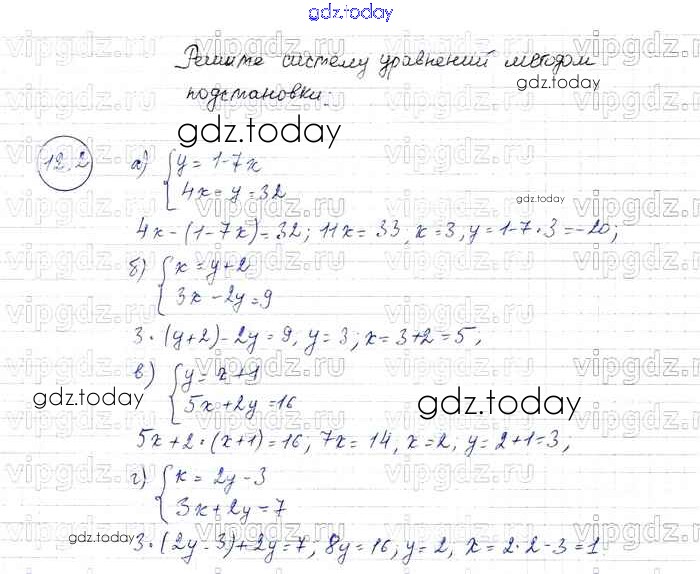 gdz.today
Решите систему уравнений методом
gdz.today
подстановки:
gdz.today
12.2
а) { y = 1-7x
4x = y = 32
gdz.today
4x - (1-7x) = 32; 11x = 33, x = 3, y = 1-7·3 = -20;
б) { x = y+2
3x - 2y = 9
3·(y+2) - 2y = 9, y = 3; x = 3+2 = 5;
в) { y = x+1
gdz.today
5x+2y = 16
gdz.today
5x+2·(x+1) = 16, 7x = 14, x = 2, y = 2+1 = 3,
г) { x = 2y-3
3x+2y = 7
gdz.today
3·(2y-3)+2y = 7, 8y = 16, y = 2, x = 2·2-3 = 1
vipgdz.ru